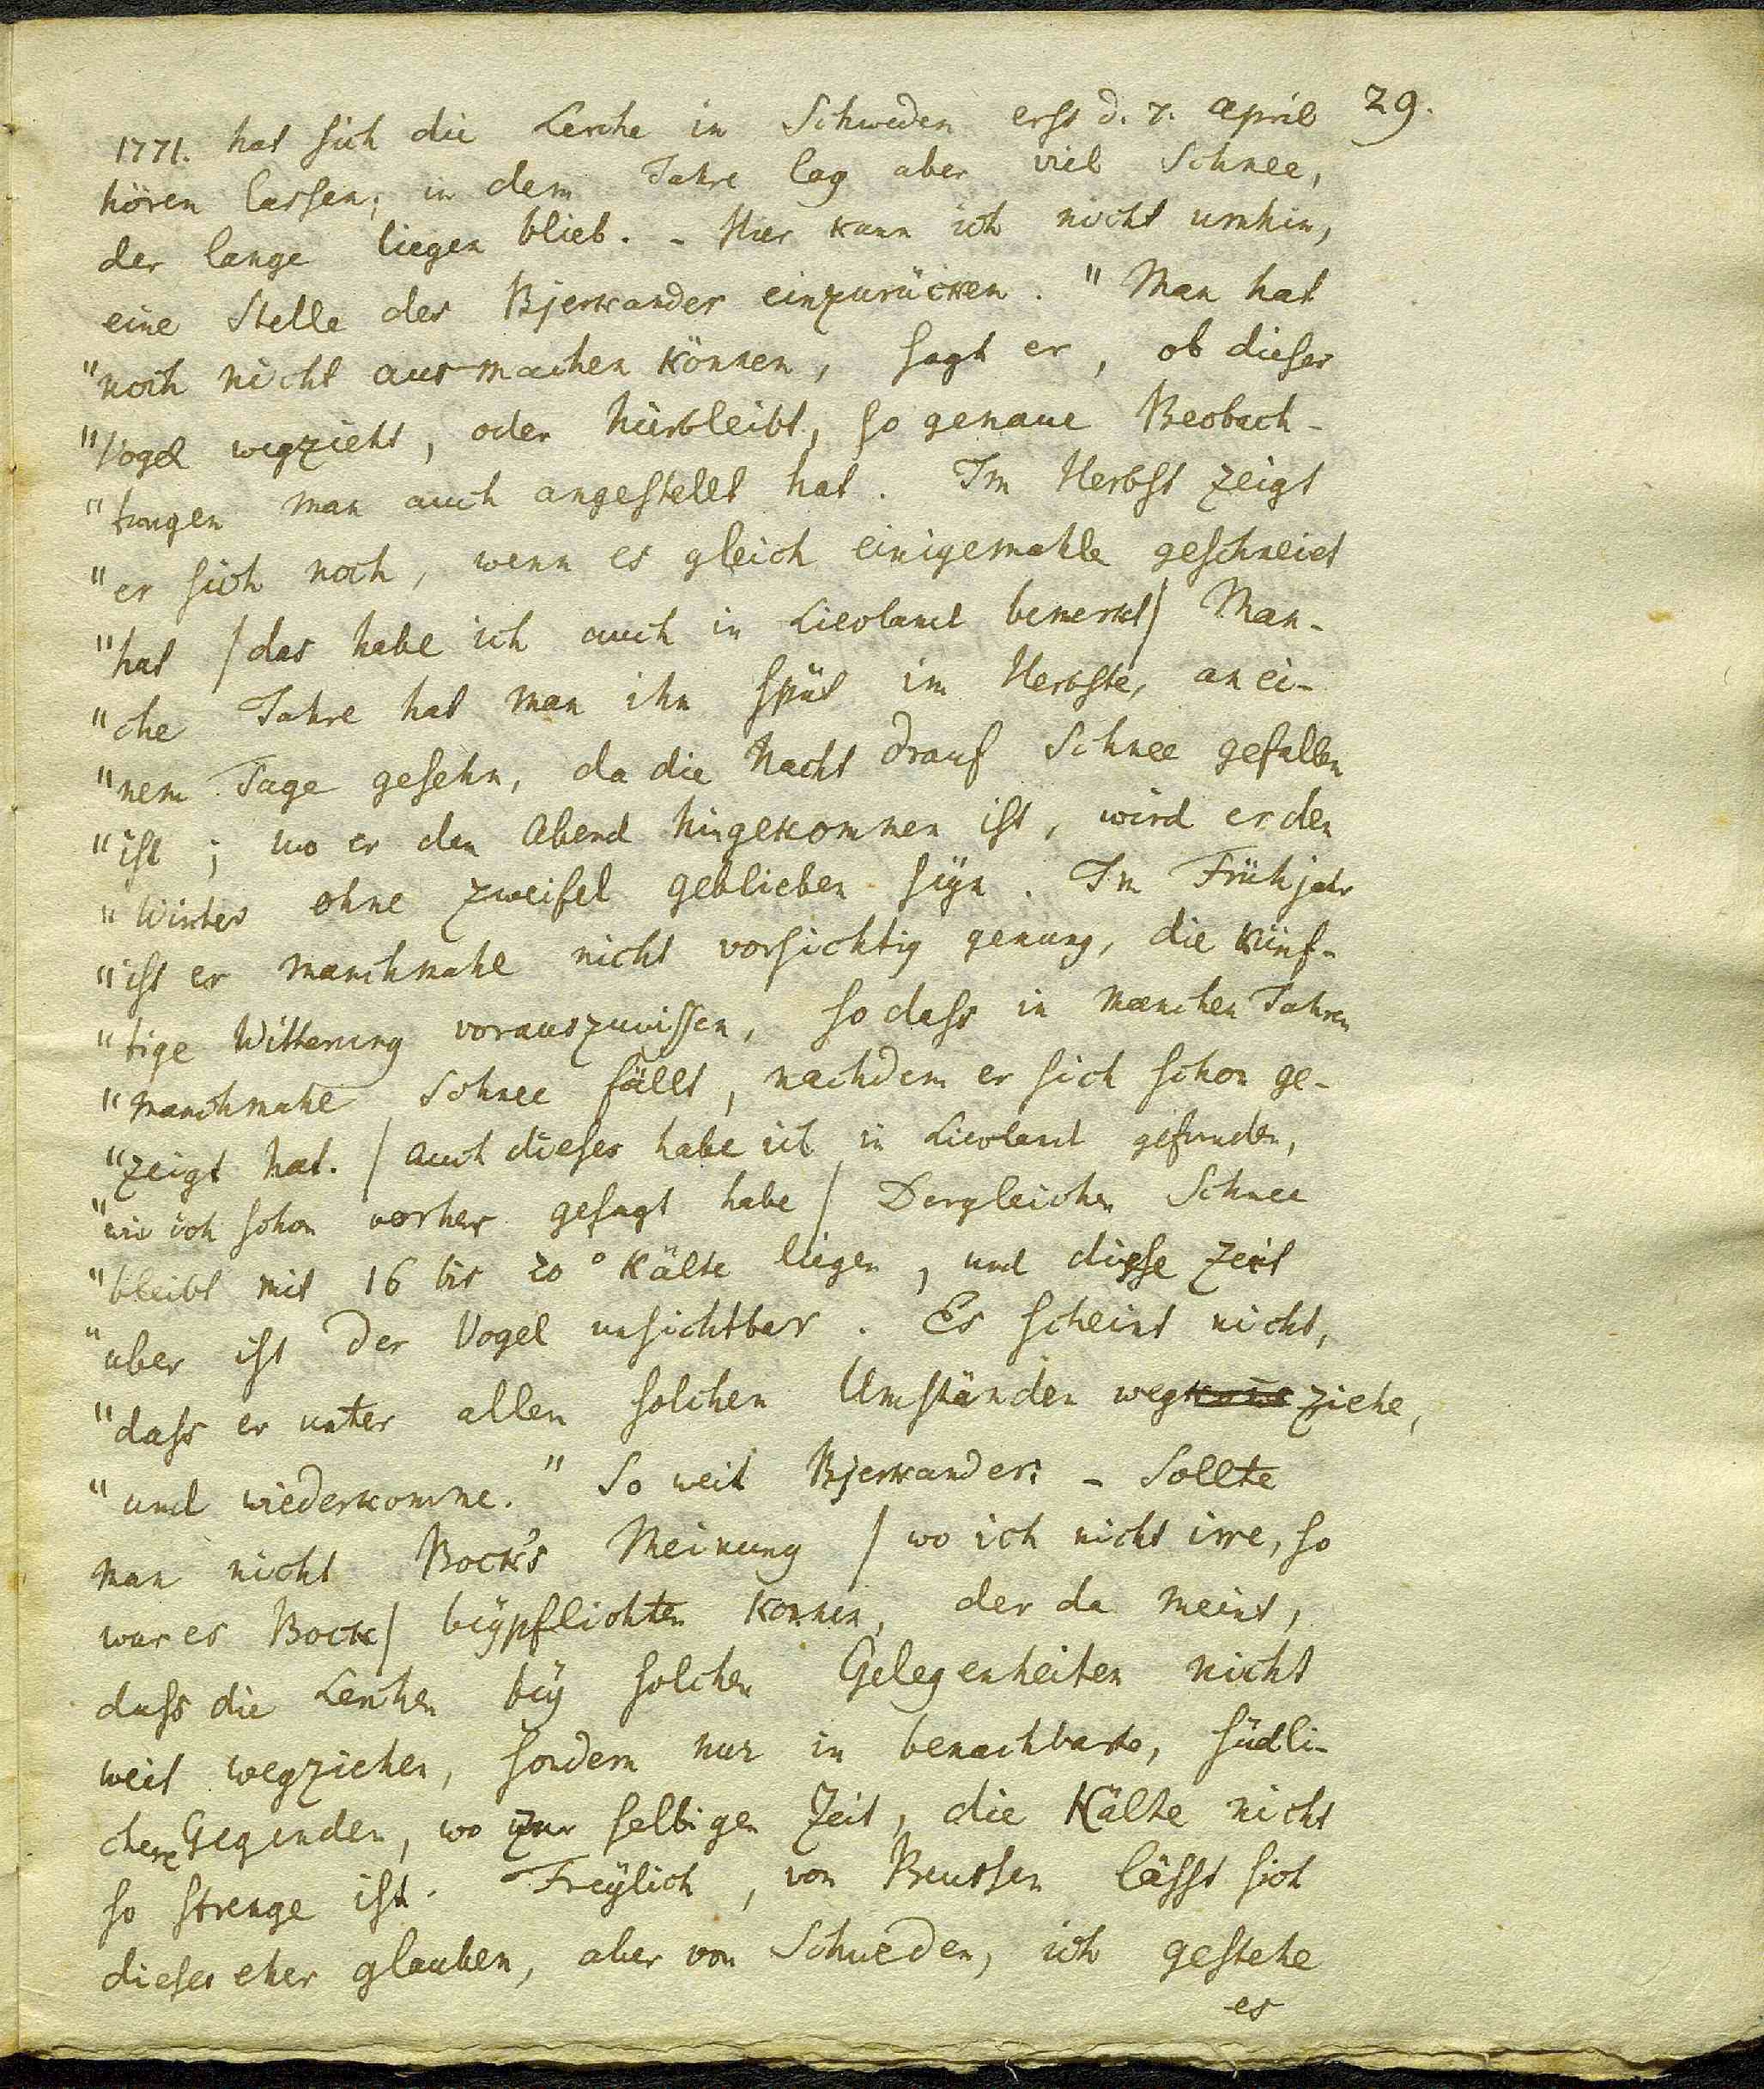 29.
1771. hat sich die Lerche in Schweden erst d. 7. April
hören lassen; in dem Jahre lag aber viel Schnee,
der lange liegen blieb. - Hier kann ich nicht umhin,
eine Stelle des Bjerkander einzurücken. " Man hat
"noch nicht ausmachen können, sagt er, ob dieser
"Vogel wegzieht, oder hierbleibt, so genaue Beobach-
"tungen man auch angestellt hat. Im Herbst zeigt
"er sich noch, wenn es gleich einigemahle geschneiet
"hat /das habe ich auch in Lievland bemerkt/ Man-
"che Jahre hat man ihn spät im Herbste, an ei-
"nem Tage gesehn, da die Nacht drauf Schnee gefallen
"ist; wo er den Abend hingekommen ist, wird er den
"Winter ohne Zweifel geblieben seyn. Im Frühjahr
"ist er manchmahl nicht vorsichtig genung, die künf-
"tige Witterung vorauszuwissen, so dass in manchen Jahren
"manchmahl Schnee fällt, nachdem er sich schon ge-
"zeigt hat. /auch dieses habe ich in Lievland gefunden,
"wie ich schon vorher gesagt habe/ Dergleichen Schnee
"bleibt mit 16 bis 20° Kälte liegen, und diese Zeit
"über ist der Vogel unsichtbar. Es scheint nicht,
"dass er unter allen solchen Umständen wegziehe,
"und wiederkomme." So weit Bjerkander. - Sollte
man nicht Bock's Meinung /wo ich nicht irre, so
war es Bock/ beypflichten können, der da meint,
dass die Lerchen bey solchen Gelegenheiten nicht
weit wegziehen, sondern nur in benachbarte, südli-
chere Gegenden, wo zur selbigen Zeit, die Kälte nicht
so strenge ist. Freylich, von Preussen lässt sich
dieses eher glauben, aber von Schweden, ich gestehe
es